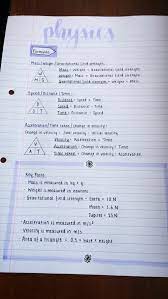 physics
Formulas
Mass / Weight / Gravitational field strength.
Mass = Weight ÷ Gravitational field strength
Weight = Mass × Gravitational field strength
Gravitational field strength = Weight ÷ Mass
Speed / Distance / Time.
D
S T
Distance = Speed × Time
Speed = Distance ÷ Time
Time = Distance ÷ Speed
Acceleration / Time taken / Change in velocity.
Change in velocity = Final velocity - Initial velocity
Acceleration = Change in velocity ÷ Time
Time taken = Change in velocity ÷ Acceleration
Key Facts
- Mass is measured in kg / g
- Weight is measured in newtons
- Gravitational field strength : Earth = 10 N
- Acceleration is measured in m/s²
- Velocity is measured in m/s
- Area of a triangle = 0.5 × base × height